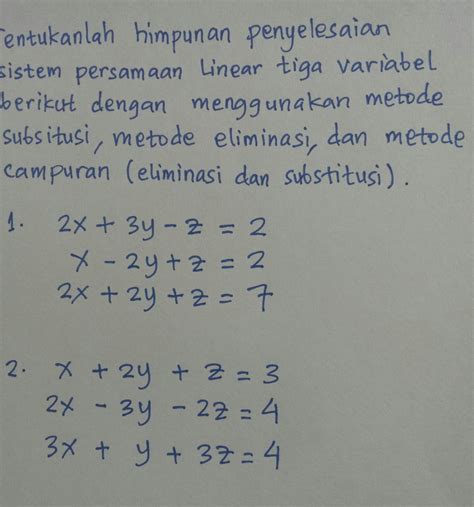 Tentukanlah himpunan penyelesaian
sistem persamaan Linear tiga variabel
berikut dengan menggunakan metode
subsitusi, metode eliminasi, dan metode
campuran (eliminasi dan substitusi).
1. 2x + 3y - z = 2
x - 2y + z = 2
2x + 2y + z = 7
2. x + 2y + z = 3
2x - 3y - 2z = 4
3x + y + 3z = 4